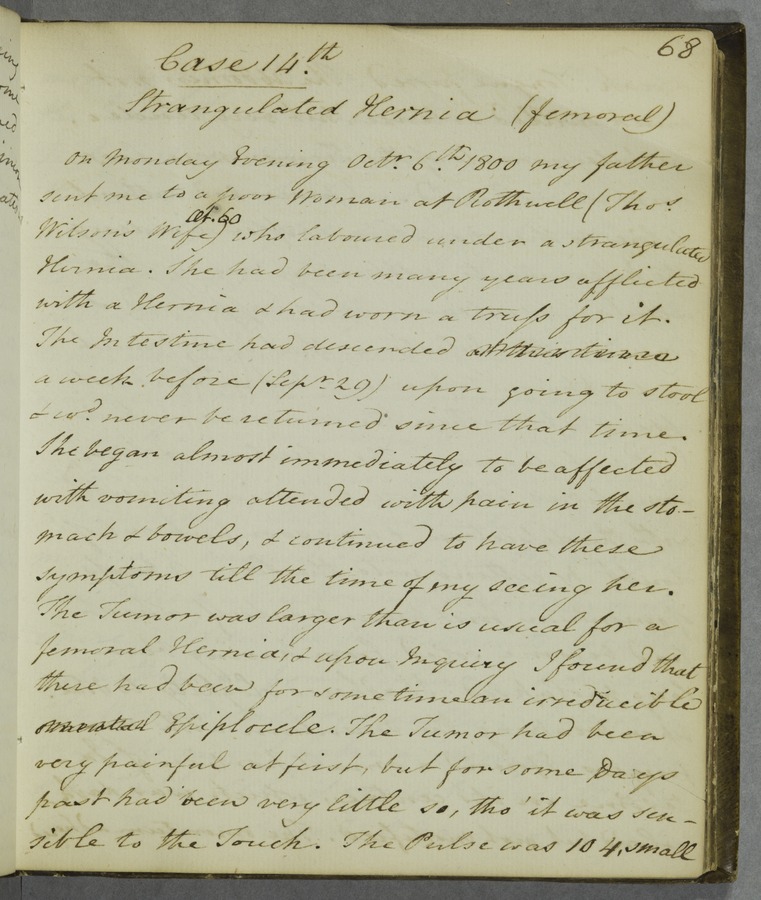 68
Case 14.th
Strangulated Hernia (femoral)
On Monday Evening Octr. 6.th 1800 my father
sent me to a poor Woman at Rothwell (Thos.
Wilson's Wife) æt. 60 who laboured under a strangulated
Hernia. She had been many years afflicted
with a Hernia & had worn a truss for it.
The Intestine had descended
a week before (Sepr. 29) upon going to stool
& cod. never be returned since that time.
She began almost immediately to be affected
with vomiting attended with pain in the sto-
mach & bowels, & continued to have these
symptoms till the time of my seeing her.
The Tumor was larger than is usual for a
femoral Hernia, & upon Inquiry I found that
there had been for some time an irreducible
omental Epiplocele. The Tumor had been
very painful at first, but for some Days
past had been very little so, tho' it was sen-
sible to the Touch. The Pulse was 104, small